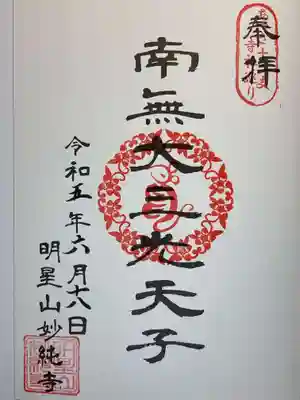 奉拝
南無大光天子
令和五年六月十八日
明星山妙純寺